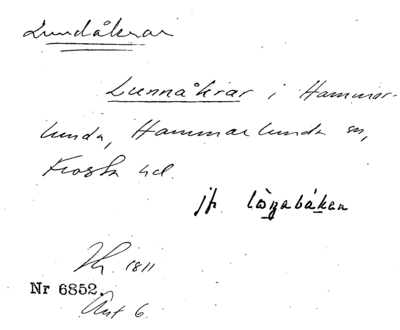 Lundåkrar
Lunnåkrar i Hammar-
lunda, Hammarlunda sn,
Frosta hd.
jfr lögabäkan
1811
Nr 6852.
Akt 6.